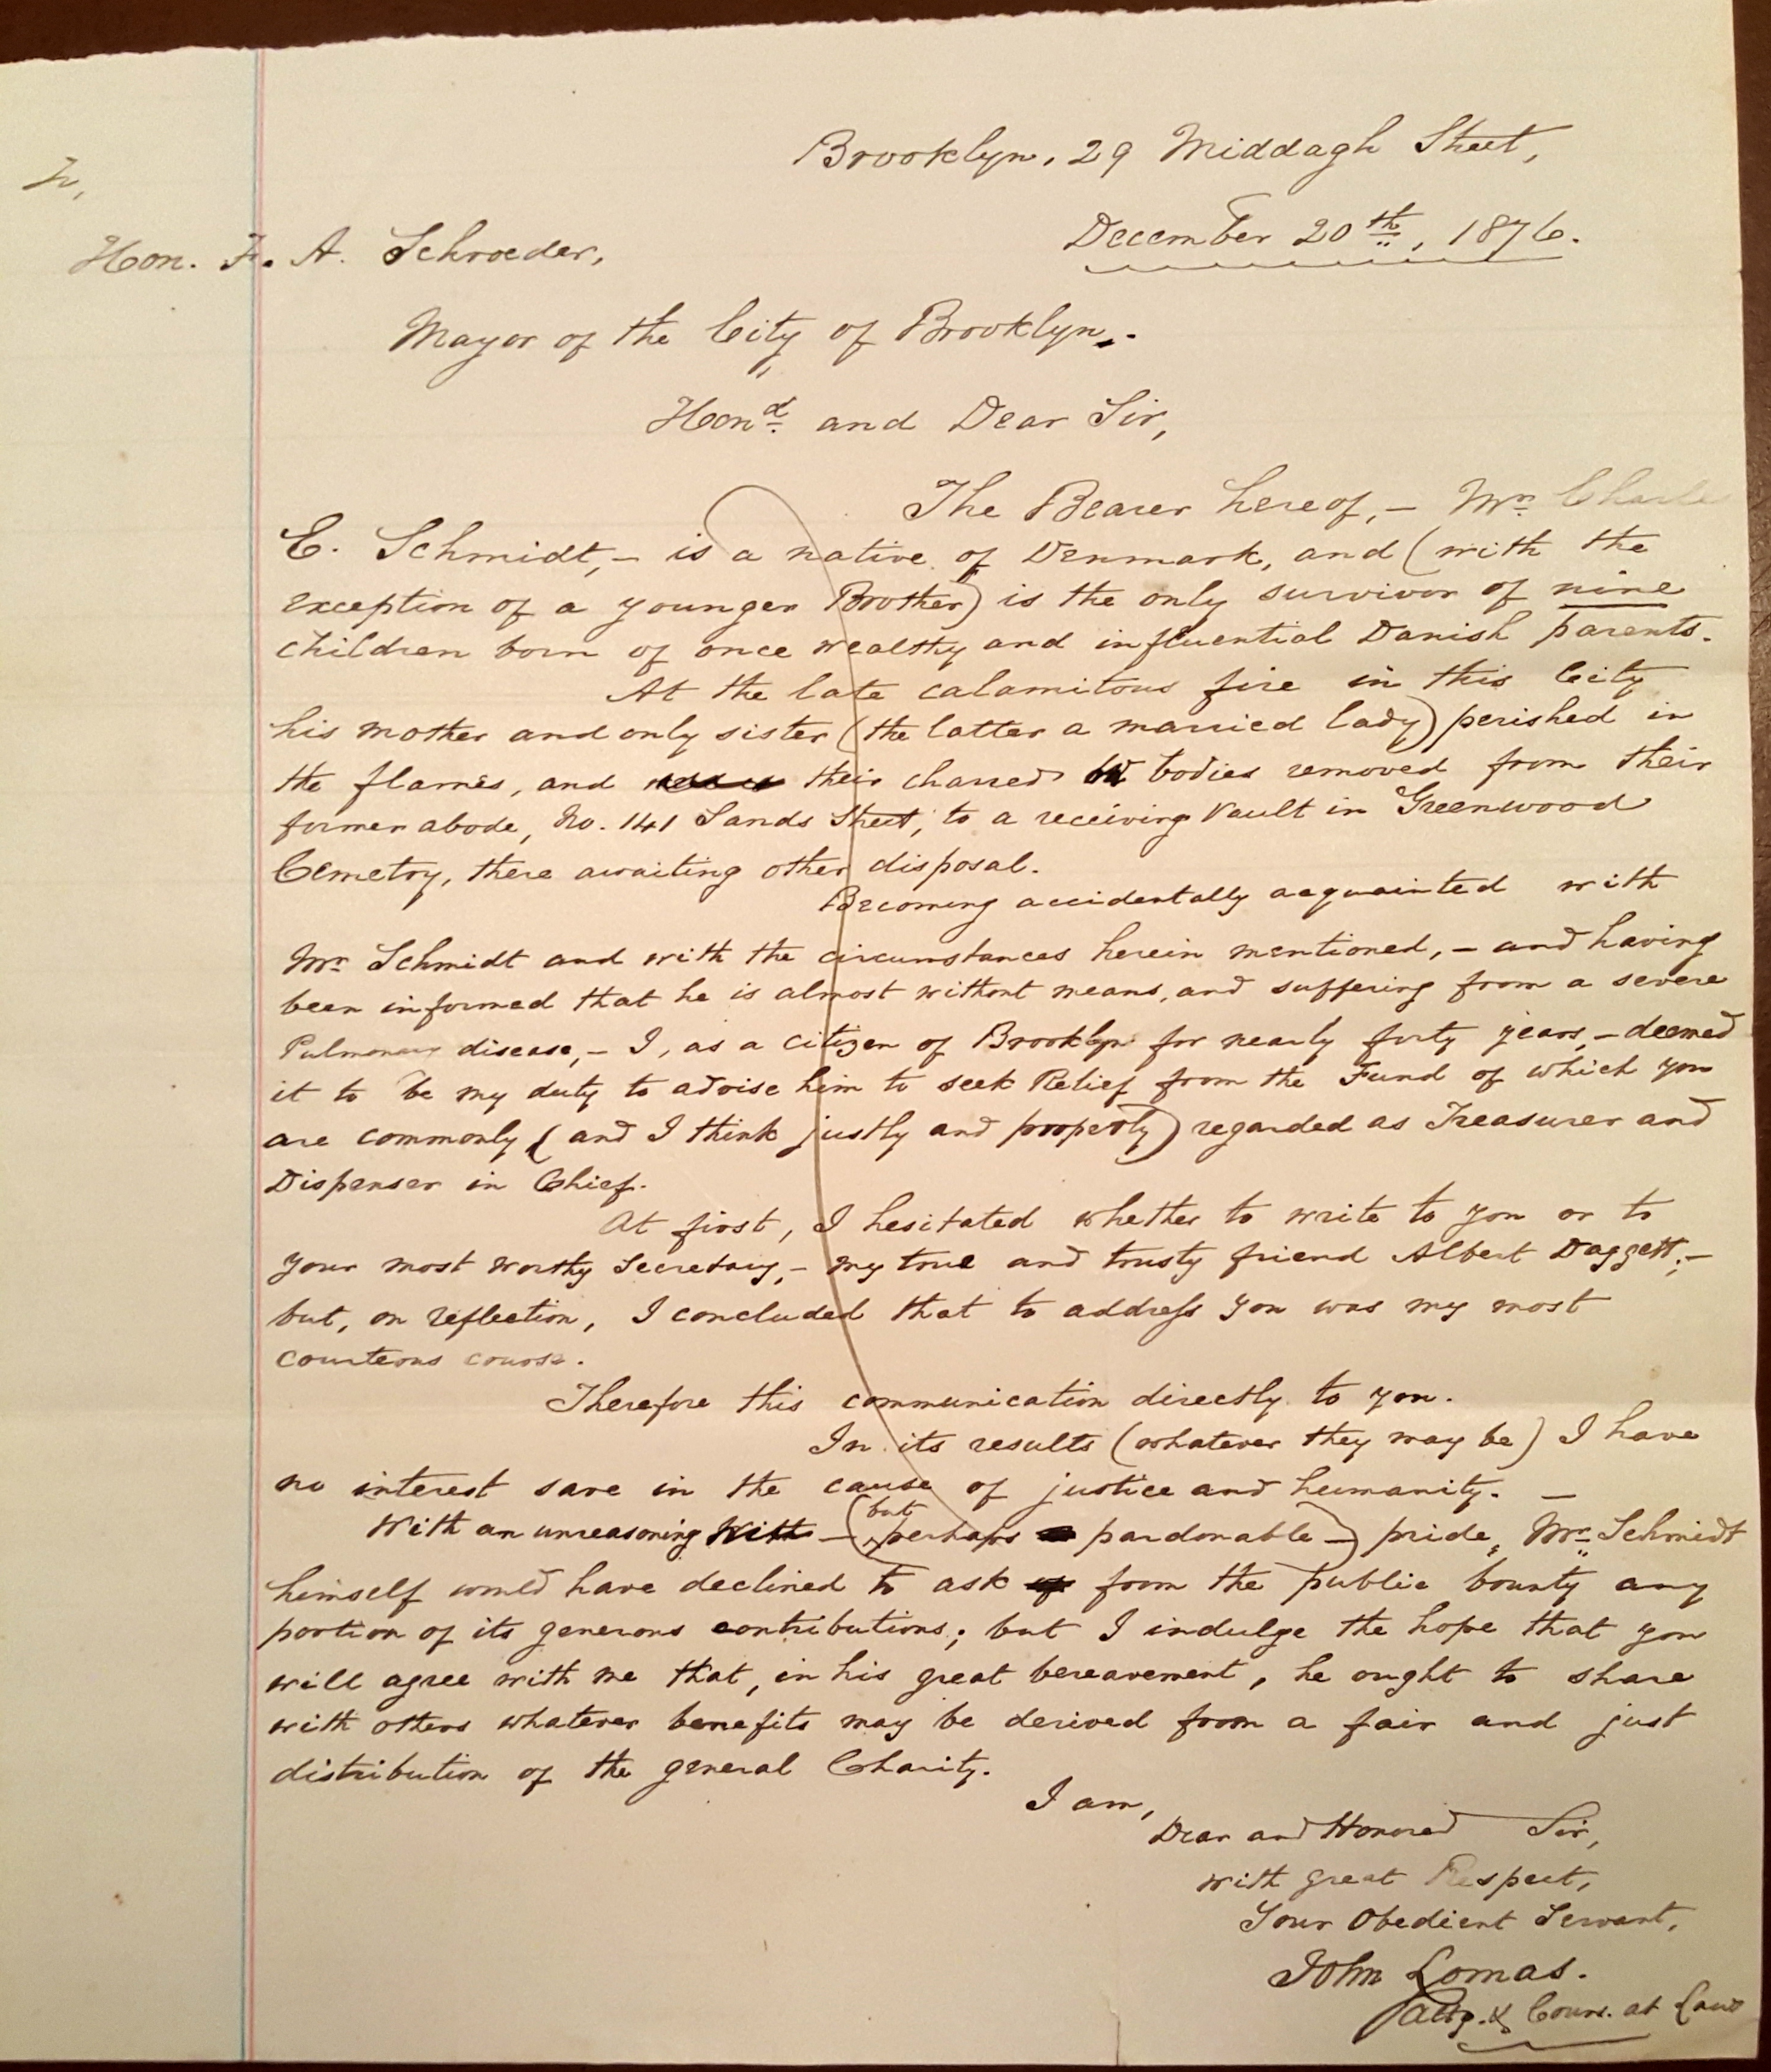 Brooklyn, 29 Middagh Street,
December 20th, 1876.
Hon. F. A. Schroeder,
Mayor of the City of Brooklyn.
Hond. and Dear Sir,
The Bearer hereof, – Mr. Charles
E. Schmidt, – is a native of Denmark, and (with the
exception of a younger Brother) is the only survivor of nine
children born of once wealthy and influential Danish parents.
At the late calamitous fire in this City
his mother and only sister (the latter a married lady) perished in
the flames, and their charred bodies removed from their
former abode, No. 141 Sands Street, to a receiving Vault in Greenwood
Cemetry, there awaiting other disposal.
Becoming accidentally acquainted with
Mr. Schmidt and with the circumstances herein mentioned, – and having
been informed that he is almost without means, and suffering from a severe
Pulmonary disease, – I, as a citizen of Brooklyn for nearly forty years, – deemed
it to be my duty to advise him to seek Relief from the Fund of which you
are commonly (and I think justly and properly) regarded as Treasurer and
Dispenser in Chief.
At first, I hesitated whether to write to you or to
your most worthy Secretary, – my true and trusty friend Albert Daggett; –
but, on reflection, I concluded that to address you was my most
courteous course.
Therefore this communication directly to you.
In its results (whatever they may be) I have
no interest save in the cause of justice and humanity. –
With an unreasoning – (but perhaps pardonable –) pride, Mr. Schmidt
himself would have declined to ask from the public bounty any
portion of its generous contributions; but I indulge the hope that you
will agree with me that, in his great bereavement, he ought to share
with others whatever benefits may be derived from a fair and just
distribution of the general Charity.
I am,
Dear and Honored Sir,
with great Respect,
Your Obedient Servant,
John Lomas.
Atty. & Couns. at Law